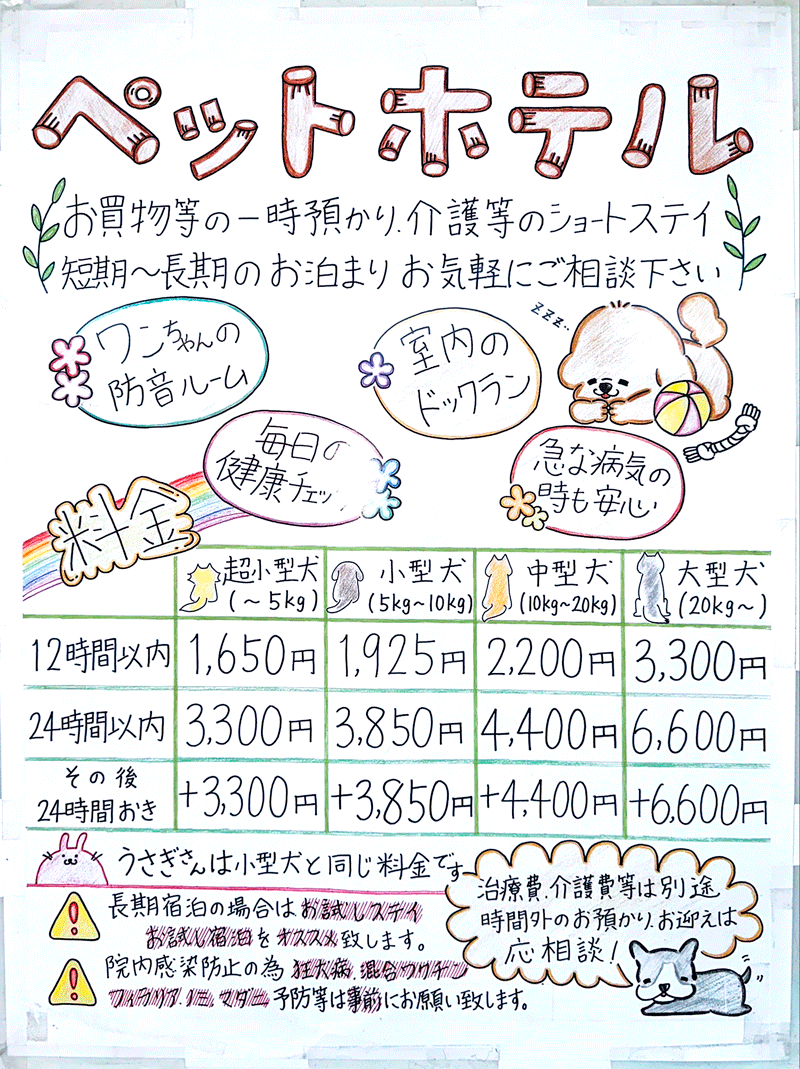 ペットホテル
お買物等の一時預かり、介護等のショートステイ
短期〜長期のお泊まり お気軽にご相談下さい
ワンちゃんの
防音ルーム
室内の
ドックラン
zzz..
毎日の
健康チェック
急な病気の
時も安心
料金
超小型犬 小型犬 中型犬 大型犬
(〜5kg) (5kg〜10kg) (10kg〜20kg) (20kg〜)
12時間以内 1,650円 1,925円 2,200円 3,300円
24時間以内 3,300円 3,850円 4,400円 6,600円
その後
24時間おき +3,300円 +3,850円 +4,400円 +6,600円
うさぎさんは小型犬と同じ料金です
長期宿泊の場合はお試しステイ
お試し宿泊をオススメ致します。
院内感染防止の為 狂犬病、混合ワクチン
フィラリア、ノミ、マダニ予防等は事前にお願い致します。
治療費、介護費等は別途
時間外のお預かり、お迎えは
応相談!